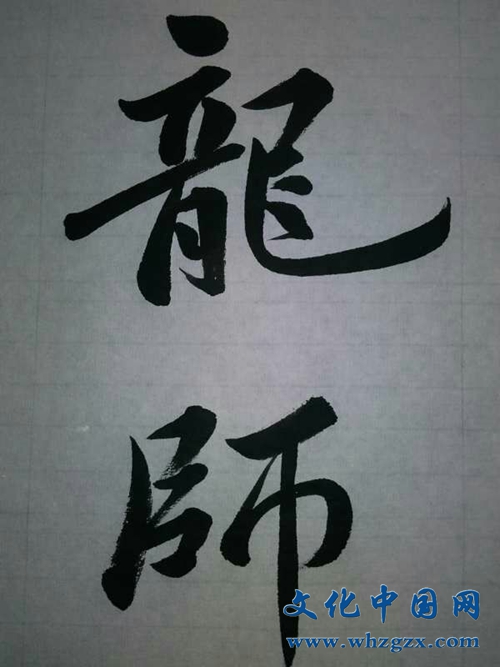 龍
師
文化中国网
www.whzgzx.com